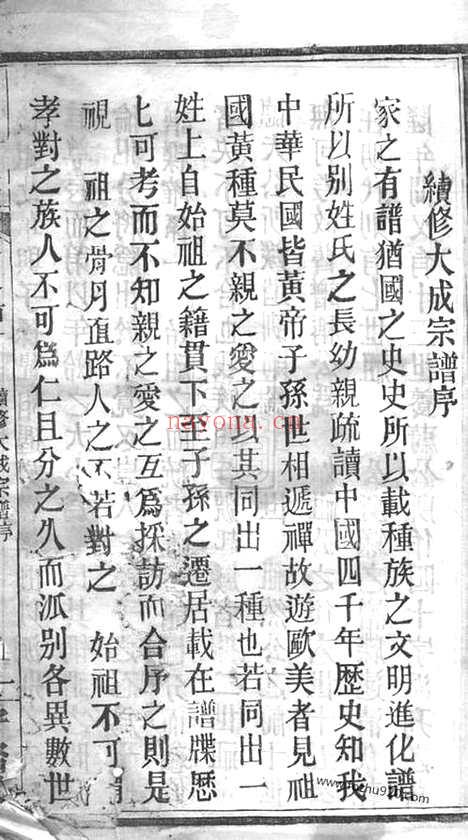 續修大成宗譜序
家之有譜猶國之史史所以載種族之文明進化譜
所以別姓氏之長幼親疏讀中國四千年歷史知我
中華民國皆黃帝子孫世相遞禪故遊歐美者見祖
國黃種莫不親之愛之以其同出一種也若同出一
姓上自始祖之籍貫下至子孫之遷居載在譜牒歷
匕可考而不知親之愛之互爲採訪而合序之則是
視 祖之骨月直路人之不若對之 始祖不可
孝對之族人不可爲仁且分之久而派別各異數世
續修大成宗譜序
nayona.cn